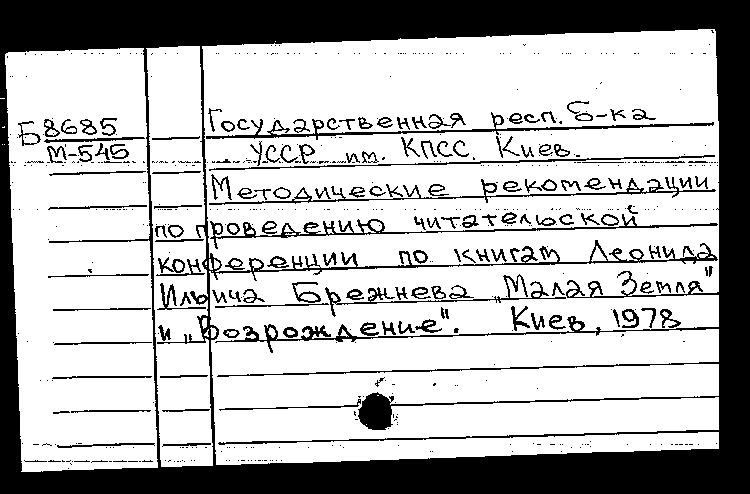 Б 8685
М-545
Государственная респ. б-ка
УССР им. КПСС. Киев.
Методические рекомендации
по проведению читательской
конференции по книгам Леонида
Ильича Брежнева „Малая Земля"
и „Возрождение". Киев, 1978